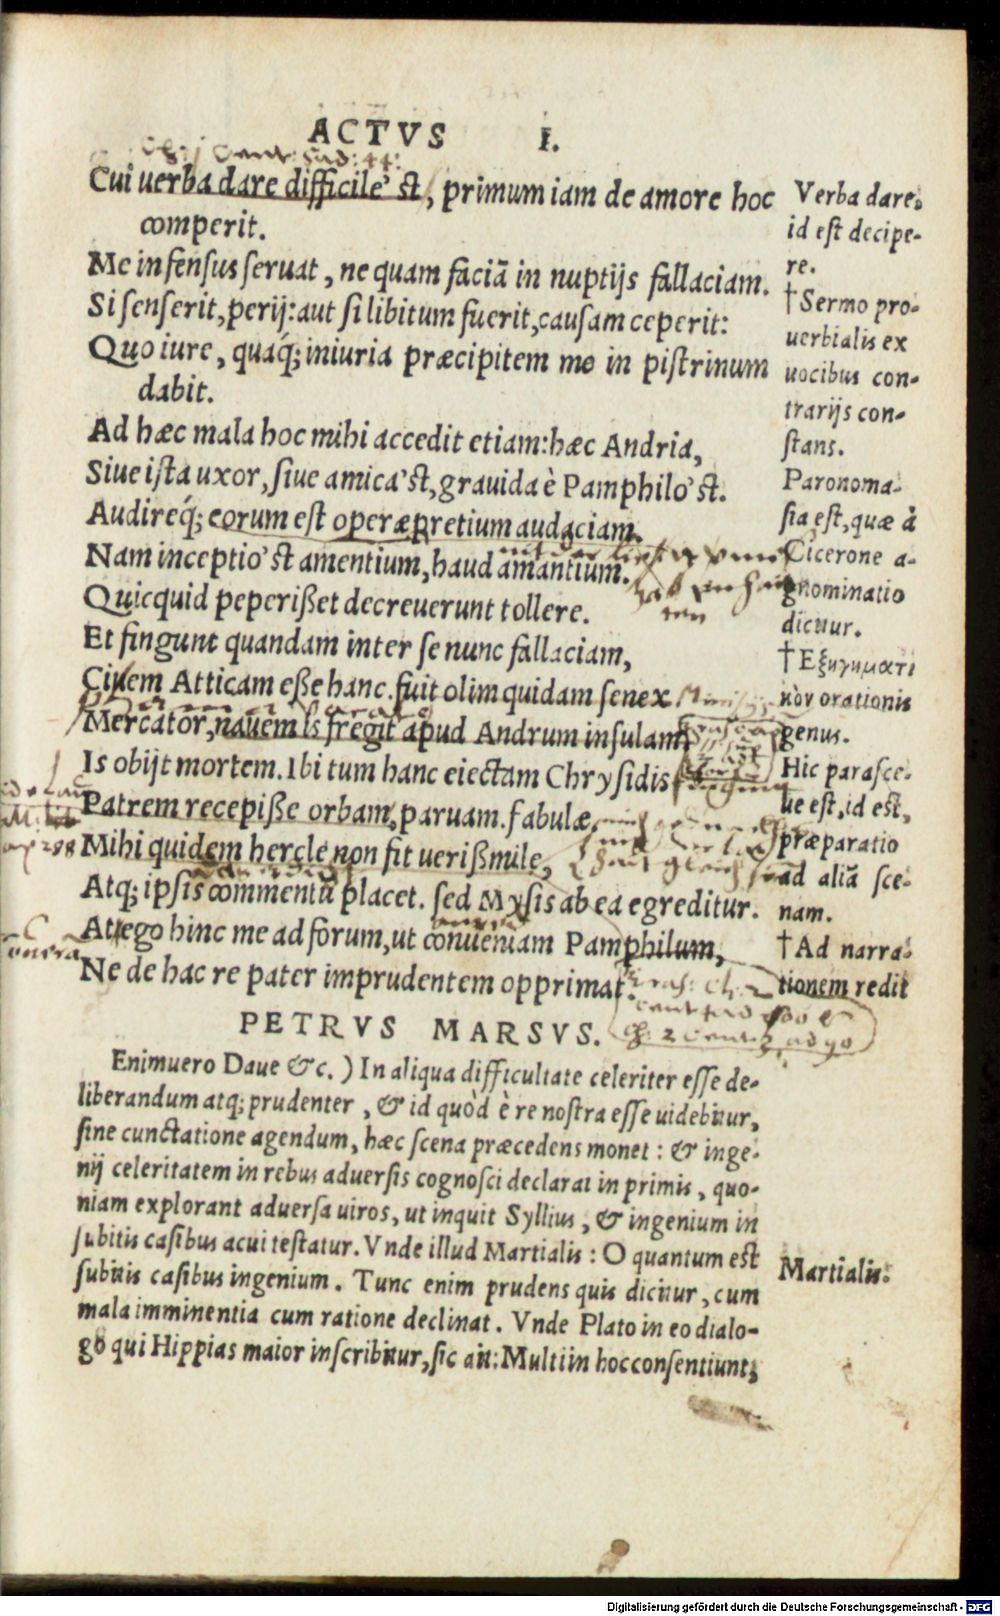 ACTVS I.
Cui uerba dare difficile’ſt, primum iam de amore hoc
comperit.
Me infenſus ſeruat, ne quam faciā in nuptijs fallaciam.
Si ſenſerit, perij: aut ſi libitum fuerit, cauſam ceperit:
Quo iure, quaq́; iniuria præcipitem me in piſtrinum
dabit.
Ad hæc mala hoc mihi accedit etiam: hæc Andria,
Siue iſta uxor, ſiue amica’ſt, grauida è Pamphilo’ſt.
Audireq́; eorum eſt operæpretium audaciam.
Nam inceptio’ſt amentium, haud amantium.
Quicquid peperißet decreuerunt tollere.
Et fingunt quandam inter ſe nunc fallaciam,
Ciuem Atticam eße hanc. fuit olim quidam ſenex
Mercator, nauem is fregit apud Andrum inſulam,
Is obijt mortem. Ibi tum hanc eiectam Chryſidis
Patrem recepiße orbam, paruam. fabulæ,
Mihi quidem hercle non fit uerißmile,
Atq; ipſis commentū placet. ſed Myſis ab ea egreditur.
At ego hinc me ad forum, ut conueniam Pamphilum,
Ne de hac re pater imprudentem opprimat.
Verba dare,
id eſt decipe-
re.
†Sermo pro-
uerbialis ex
uocibus con-
trarijs con-
ſtans.
Paronoma-
ſia eſt, quæ à
Cicerone a-
gnominatio
dicitur.
†Εξηγηματι
κὸν orationis
genus.
Hic paraſce-
ue eſt, id eſt,
præparatio
ad aliā ſce-
nam.
†Ad narra-
tionem redit
PETRVS MARSVS.
Enimuero Daue &c.) In aliqua difficultate celeriter eſſe de-
liberandum atq; prudenter, & id quòd è re noſtra eſſe uidebitur,
ſine cunctatione agendum, hæc ſcena præcedens monet: & inge-
nij celeritatem in rebus aduerſis cognoſci declarat in primis, quo-
niam explorant aduerſa uiros, ut inquit Syllius, & ingenium in
ſubitis caſibus acui teſtatur. Vnde illud Martialis: O quantum est
ſubitis caſibus ingenium. Tunc enim prudens quis dicitur, cum
mala imminentia cum ratione declinat. Vnde Plato in eo dialo-
go qui Hippias maior inſcribitur, ſic ait: Multi in hoc conſentiunt,
Martialis.
Digitalisierung gefördert durch die Deutsche Forschungsgemeinschaft - DFG